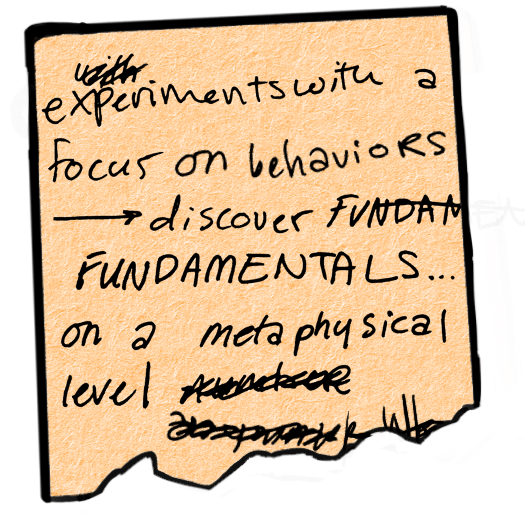 with
experiments with a
focus on behaviors
→ discover FUNDAM
FUNDAMENTALS...
on a metaphysical
level